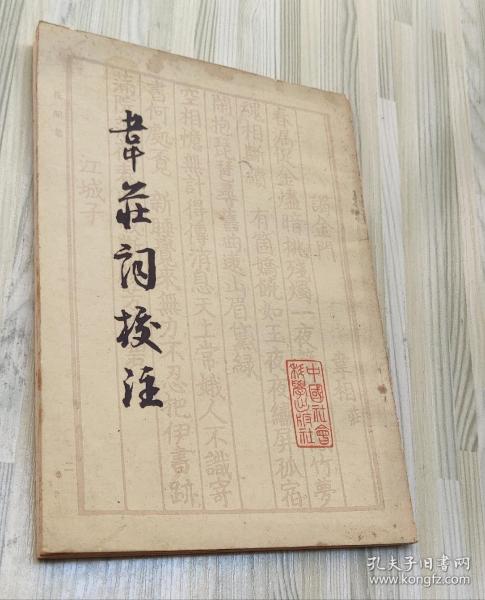 韋莊詞校注
中國社會
科學出版社
謁金門
韋相
春漏促金燼暗挑殘燭一夜
竹夢
魂相斷續 有箇嬌饒如玉夜夜繡屏孤宿
閑抱琵琶尋舊曲遠山眉黛綠
空相憶無計得傳消息天上嫦娥人不識寄
書何處覓 新睡覺來無力不忍把伊書跡
江城子
孔夫子旧书网
www.kongfz.com